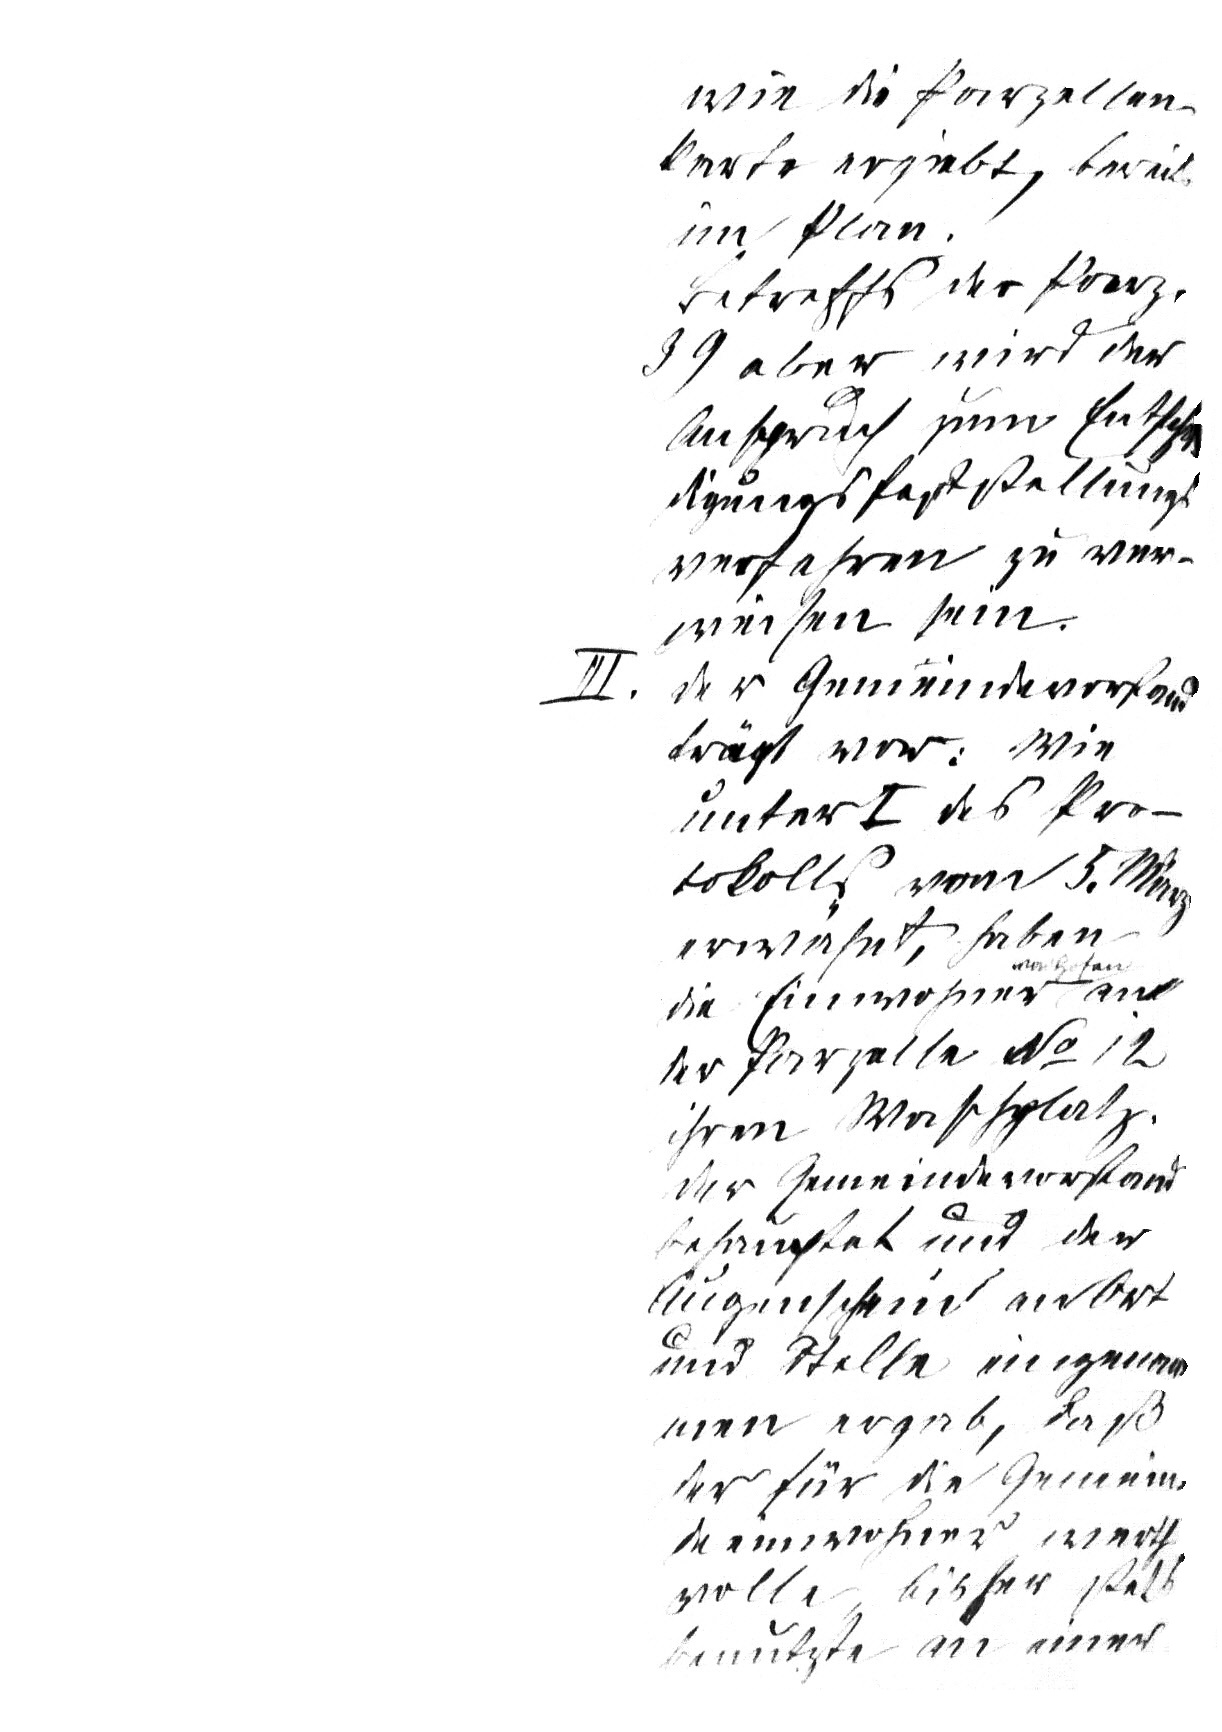 wie die Parzellen-
karte ergiebt, bereits
im Plan.
Betreffs der Parz.
39 aber wird der
Anspruch zum Entschä
digungsfeststellungs
verfahren zu ver-
weisen sein.
III. der Gemeindevorstand
trägt vor: Wie
unter I des Pro-
tokolls vom 5. März
erwähnt, haben
die Einwohner an
der Parzelle No 12
ihren Waschplatz.
der Gemeindevorstand
behauptet und der
Augenschein an Ort
und Stelle eingenom
men ergab, daß
der für die Gemein-
deeinwohner werth
volle, bisher stets
benutzte an einer